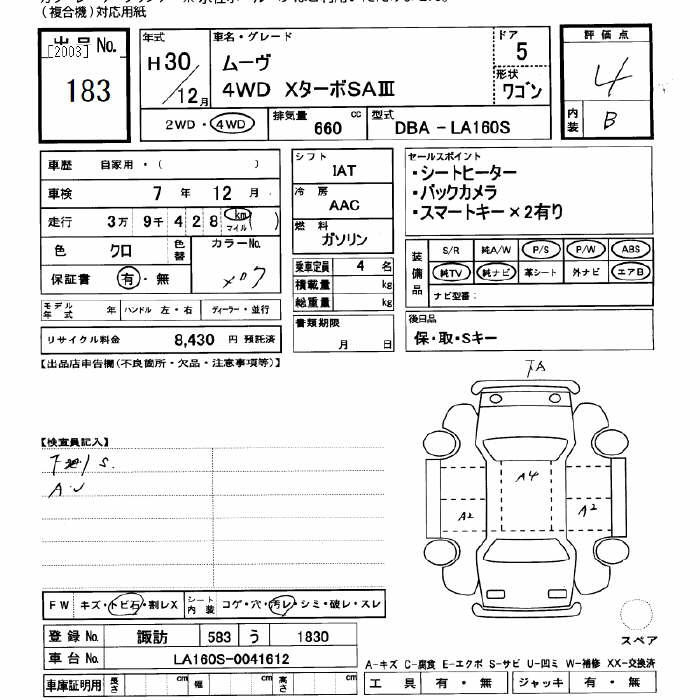 (複合機)対応用紙
出品No.
[2003]
183
年式
H30/12月
車名・グレード
ムーヴ
4WD XターボSAⅢ
ドア
5
形状
ワゴン
評価点
4
内装
B
2WD・4WD
排気量 660 cc
型式 DBA-LA160S
車歴 自家用・( )
車検 7年 12月
走行 3万9千428 km マイル ( )
色 クロ
色替
カラーNo.
保証書 有・無
モデル年式 年
ハンドル 左・右
ディーラー・並行
リサイクル料金 8,430 円 預託済
シフト
IAT
冷房
AAC
燃料
ガソリン
乗車定員 4 名
積載量 kg
総重量 kg
書類期限
月 日
セールスポイント
・シートヒーター
・バックカメラ
・スマートキー×2有り
装備品
S/R 純A/W P/S P/W ABS
純TV 純ナビ 革シート 外ナビ エアB
ナビ型番:
後日品
保・取・Sキー
【出品店申告欄(不良箇所・欠品・注意事項等)】
【検査員記入】
A・U
A
A4
A2
A2
スペア
FW キズ・トビ石・割レX
シート内装 コゲ・穴・汚レ・シミ・破レ・スレ
登録No. 諏訪 583 う 1830
車台No. LA160S-0041612
車庫証明用 長さ cm 幅 cm 高さ cm
A-キズ C-腐食 E-エクボ S-サビ U-凹ミ W-補修 XX-交換済
工具 有・無 ジャッキ 有・無